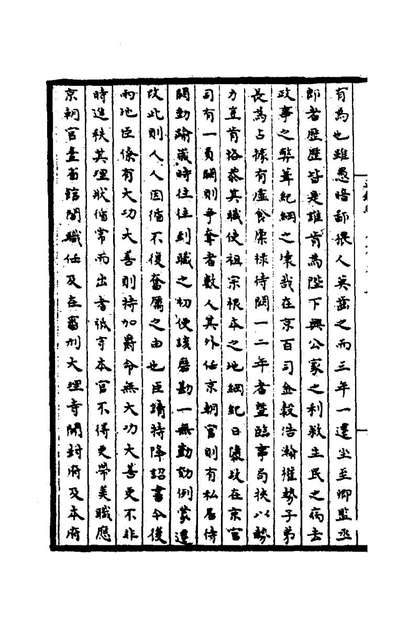 有為也雖愚暗鄙猥人莫齒之而三年一遷坐至卿監丞
郎者歷歷皆是誰肯為陛下興公家之利救生民之病去
政事之弊葺紀綱之壞哉在京百司金穀浩瀚權勢子弟
長為占據有虛食廩祿待闕一二年者暨臨事局挾以勢
力豈肯恪恭其職使祖宗根本之地綱紀日隳故在京官
司有一員闕則爭奪者數人其外任京朝官則有私居待
闕動踰歲時往往到職之初便該磨勘一無勤効例蒙遷
改此則人人因循不復奮厲之由也臣請特降詔書今後
兩地臣僚有大功大善則特加爵命無大功大善更不非
時進秩其理狀循常而出者祗守本官不得更帶美職應
京朝官臺省館閣職任及在審刑大理寺開封府及本府